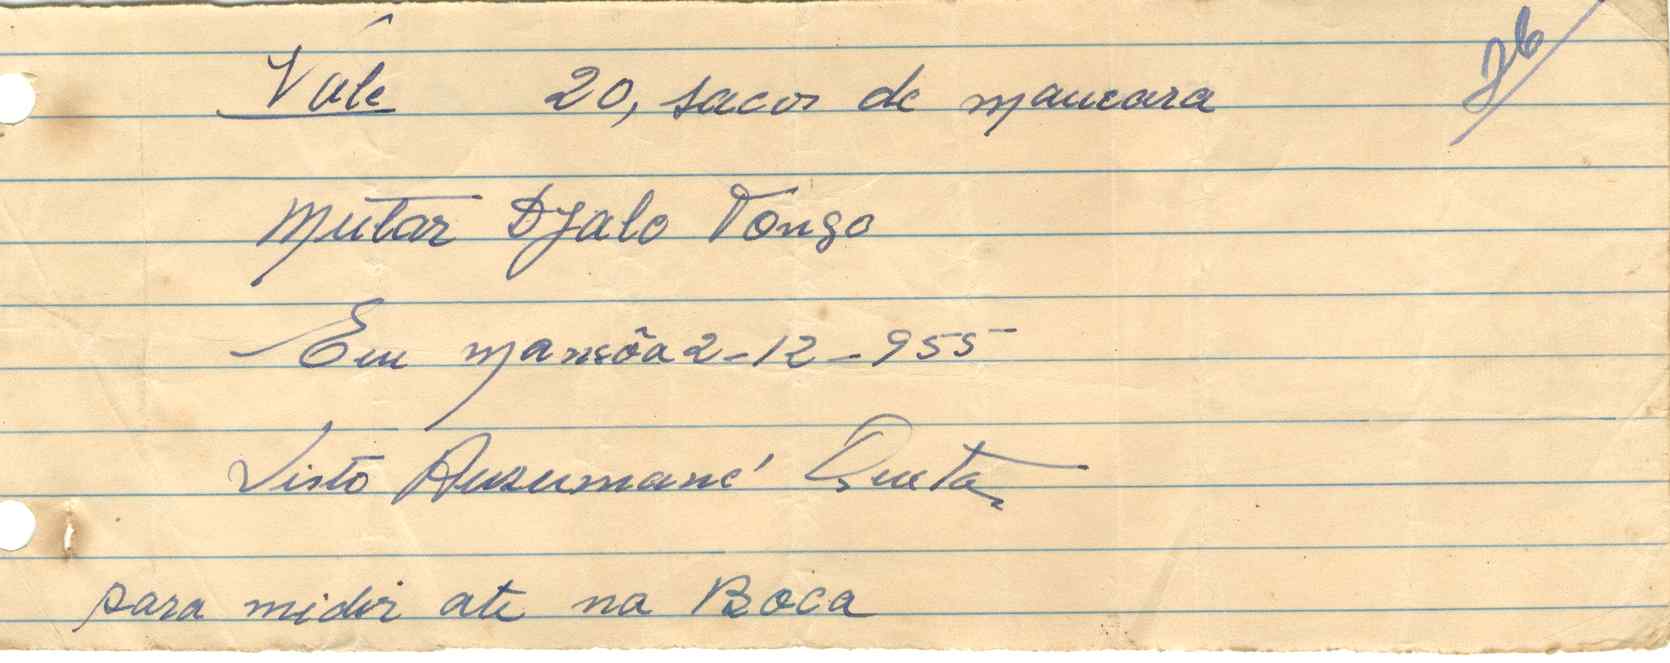 Vale 20, sacos de mancara
26
Mutar Djalo Tongo
Em mansôa 2-12-955
Visto Ansumané Queta
para midir ate na Boca